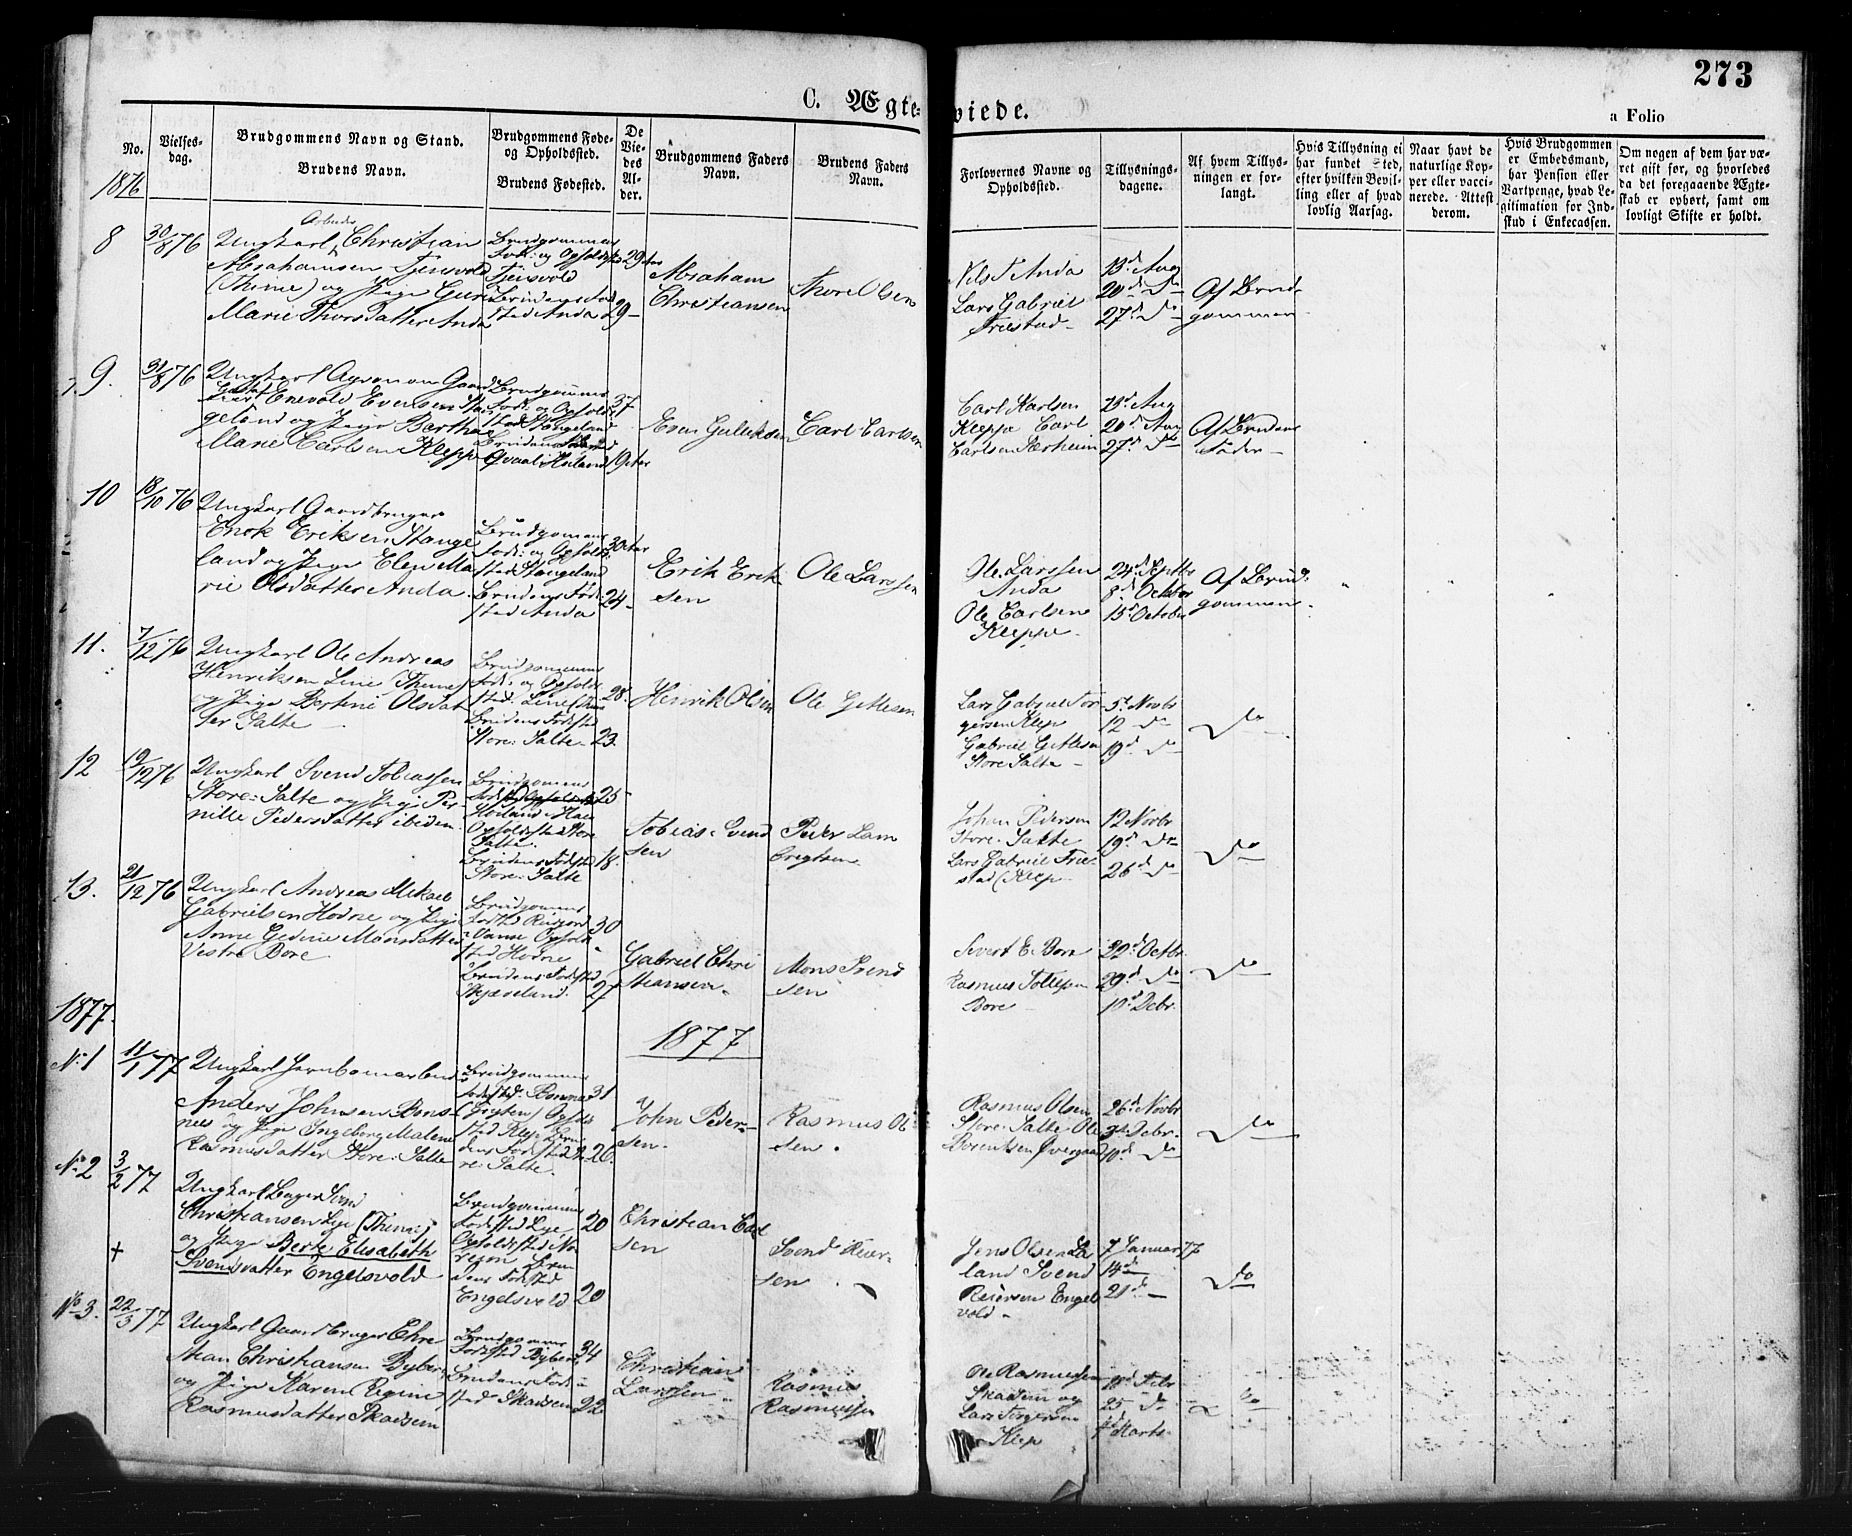 273
C. Ægte- viede.
a Folio
No.
Vielses-
dag.
Brudgommens Navn og Stand.
Brudens Navn.
Brudgommens Føde-
og Opholdssted.
Brudens Fødested.
De
Vie-
des
Al-
der.
Brudgommens Faders
Navn.
Brudens Faders
Navn.
Forlovernes Navne og
Opholdssted.
Tillysnings-
dagene.
Af hvem Tillys-
ningen er for-
langt.
Hvis Tillysning ei
har fundet Sted,
efter hvilken Bevil-
ling eller af hvad
lovlig Aarsag.
Naar havt de
naturlige Kop-
per eller vacci-
nerede. Attest
derom.
Hvis Brudgommen
er Embedsmand,
har Pension eller
Vartpenge, hvad Le-
gitimation for Ind-
skud i Enkecassen.
Om nogen af dem har væ-
ret gift før, og hvorledes
da det foregaaende Ægte-
skab er ophørt, samt om
lovligt Skifte er holdt.
1876
8
30/8 76
Arbeider
Ungkarl Christian
Abrahamsen Tjensvold
(Thime) og Pige Guri
Marie Thorsdatter Anda
Brudgommens
Fød: og Opholdssted
Tjensvold
Brudens Fød
sted Anda
29
29
Abraham
Christiansen
Thore Olsen
Nils T Anda
Lars Gabriel
Friestad
13d Aug
20d Do
27d Do
Af Brud-
gommen
9.
31/8 76
Ungkarl
Enevold Evensen Stan
geland og Pige Bertha
Marie Carlsen Kleppe
Brudgommens
Fød: og Ophold
sted Stangeland
Brudens
37
19
Even Gulliksen
Carl Carlsen
Carl Karlsen
Kleppe Carl
Carlsen Særheim
13d Aug
20d Aug
27d Do
Af Brudens
Fader
10
18/10 76
Ungkarl Gaardbruger
Enok Eriksen Stange
land og Pige Elen Ma
rie Olsdatter Anda
Brudgommens
Fød: og Ophold
sted Stangeland
Brudens Fød
sted Anda
30
24
Erik Erik
sen
Ole Larssen
Ole Larssen
Anda
Ole Carlsen
Kleppe
24d Septbr
8d Octobr
15d October
Af Brud-
gommen
11.
7/12 76
Ungkarl Ole Andreas
Henriksen Line (Thime)
og Pige Bertine Olsdat
ter Salte
Brudgommens
Fød: og Ophold
sted. Line
Brudens Fødested
Store: Salte
28.
23.
Henrik Olsen
Ole Gitlesen
Lars Gabriel Tor
gersen Klep
Gabriel Gitlesen
Store Salte
5d Novbr
12 Do
19d Do
Do
12
19/12 76
Ungkarl Svend Tobiassen
Store: Salte og Pige Per-
nille Pedersdatter ibidem
Brudgommens
Høiland Haa
Opholdssted Store
Salte.
Brudens Fødsted
Store: Salte
25
18.
Tobias Svend
sen
Peder Lam
bregtsen
Johan Pedersen
Store: Salte
Lars Gabriel Frie-
stad (Klep
12 Novbr
19d Do
26d Do
Do
13.
21/12 76
Ungkarl Andreas Mikael
Gabrielsen Hodne og Pige
Anne Gedine Monsdatter
Vestre Bore
Brudgommens
Vanse Ophold
sted Hodne
Brudens Fødsted
Skjæveland.
30
27
Gabriel Chri
stiansen
Mons Svend
sen
Sivert E. Bore
Rasmus Tollefsen
Bore
22d Octbr.
29d Do
10d Decbr.
Do
1877.
1877
No 1
11/1 77
Ungkarl Jernbanearbeider
Anders Johnsen Bons-
nes og Pige Ingeborg Malene
Rasmusdatter Store: Salte
Brudgommens
Fødested:
sted Klep Bru
dens Fødested Sto
re: Salte
31
26.
John Peder-
sen
Rasmus Ol
sen
Rasmus Olsen
Store: Salte Ole
Berentsen Øvergaard
26d Novbr
3d Decbr.
10d Do
Do
No 2
3/2 77
Ungkarl Bager Svend
Christiansen Lye (Thime)
og Pige Berte Elisabeth
Svendsdatter Engelsvold
+
Brudgommens
Fødested Lye
Opholdssted No
reim Bru
dens Fødsted
Engelsvold
20
20
Christian Carl
sen
Svend Reier-
sen
Jens Olsen La
land Svend
Reiersen Engel
vold
7 Januar 77
14d
21d
Do
No 3.
22/3 77
Ungkarl Gaardbruger Chri
stian Christiansen Byberg
og Pige Karen Regine
Rasmusdatter Skadsem
Brudgommens
Fødested Byberg
Brudens Fød-
sted Skadsem
34
22
Christian
Larssen
Rasmus
Rasmussen
Ole Rasmussen
Skadsem og
Lars Torgersen
Klep
Febr
25 Do
Marts
Do